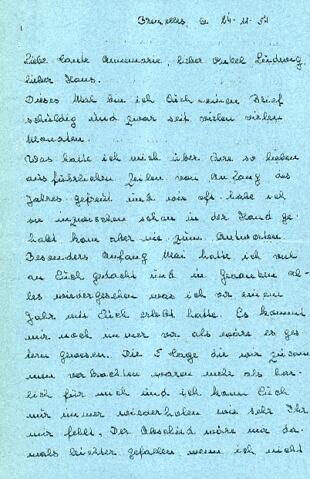 Bruxelles, le 24-11-54
Liebe Tante Annemarie, lieber Onkel Ludwig,
lieber Hans.
Dieses Mal bin ich Euch einen Brief
schuldig und zwar seit vielen vielen
Monaten.
Was hatte ich mich über Ihre so lieben
ausführlichen Zeilen von Anfang des
Jahres gefreut und wie oft habe ich
sie inzwischen schon in der Hand ge-
habt kam aber nie zum Antworten
Besonders Anfang Mai hatte ich viel
an Euch gedacht und in Gedanken al-
les wiedergesehen was ich vor einem
Jahr mit Euch erlebt hatte. Es kommt
mir noch immer vor als wäre es ges
tern gewesen. Die 5 Tage die wir zusam
men verbrachten waren mehr als herr
lich für mich und ich kann Euch
nur immer wiederholen wie sehr Ihr
mir fehlt. Der Abschied wäre mir da-
mals leichter gefallen wenn ich nicht